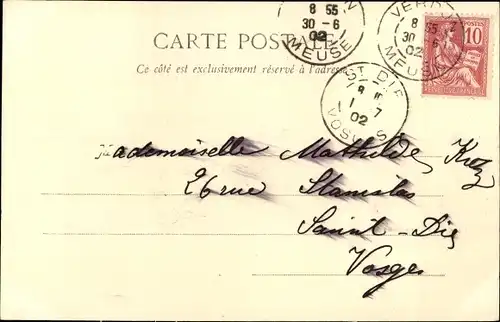 VERDUN
8 55
30 - 6
02
MEUSE
VERDUN
8 55
30 6
02
MEUSE
10
POSTES
CARTE POSTALE
Ce côté est exclusivement réservé à l'adresse
ST DIÉ
1 7
02
VOSGES
Mademoiselle Mathilde
26 rue Stanislas
Saint-Dié
Vosges